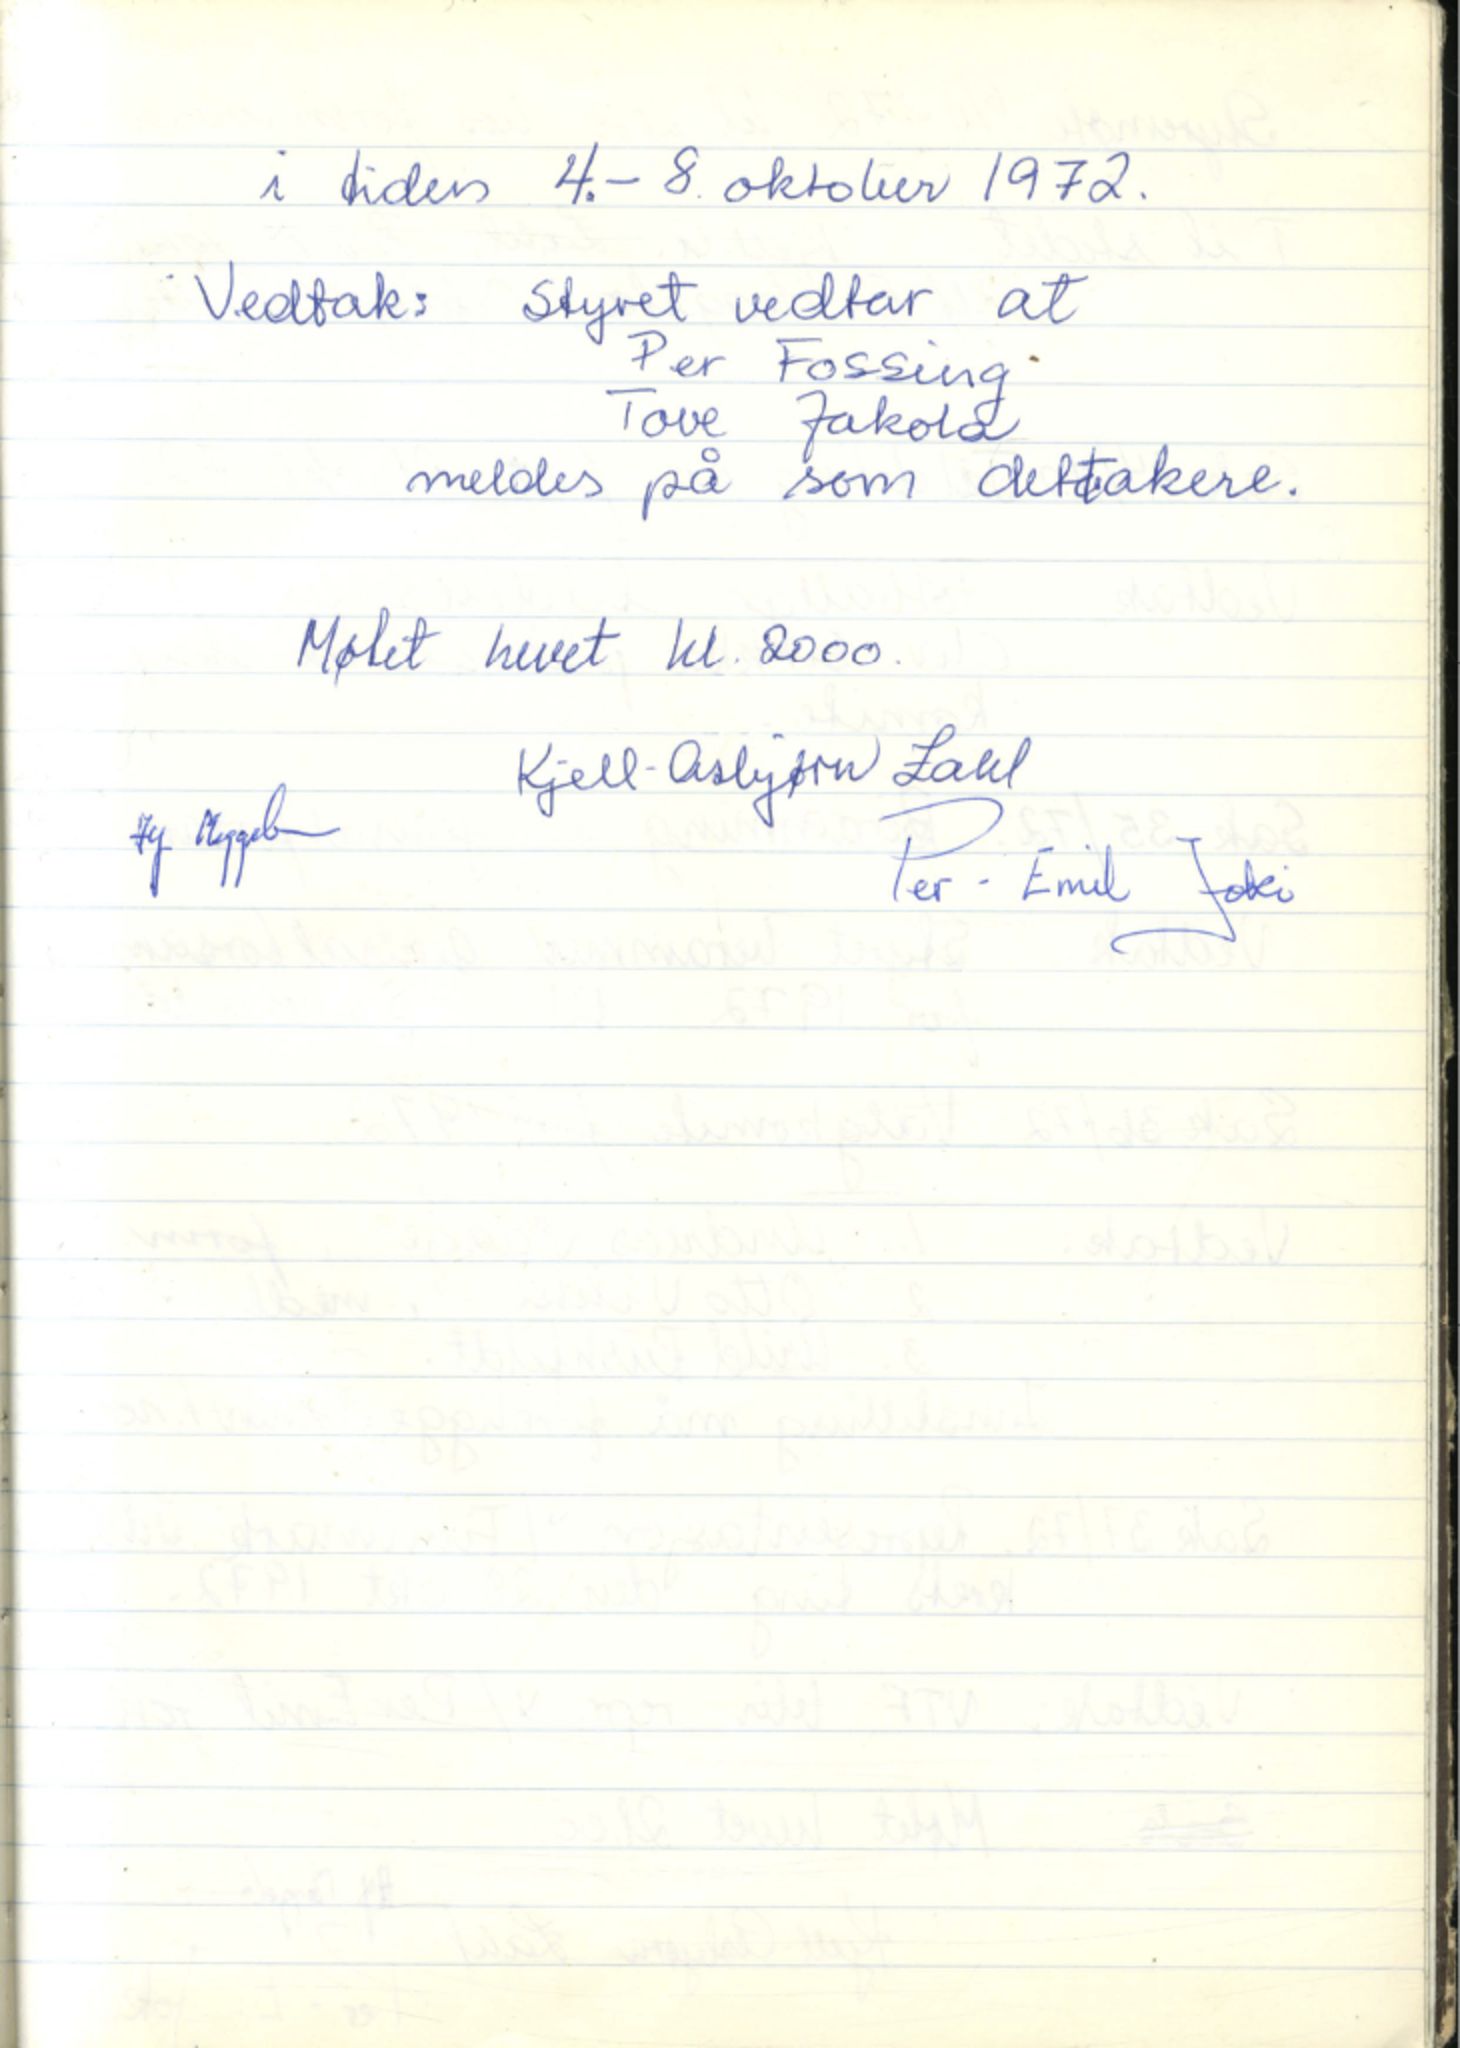 i tiden 4.- 8. oktober 1972.
Vedtak: Styret vedtar at
Per Fossing
Tove Jakola
meldes på som deltakere.
Møtet hevet kl. 2000.
Kjell-Asbjørn Zahl
Per-Emil Joki